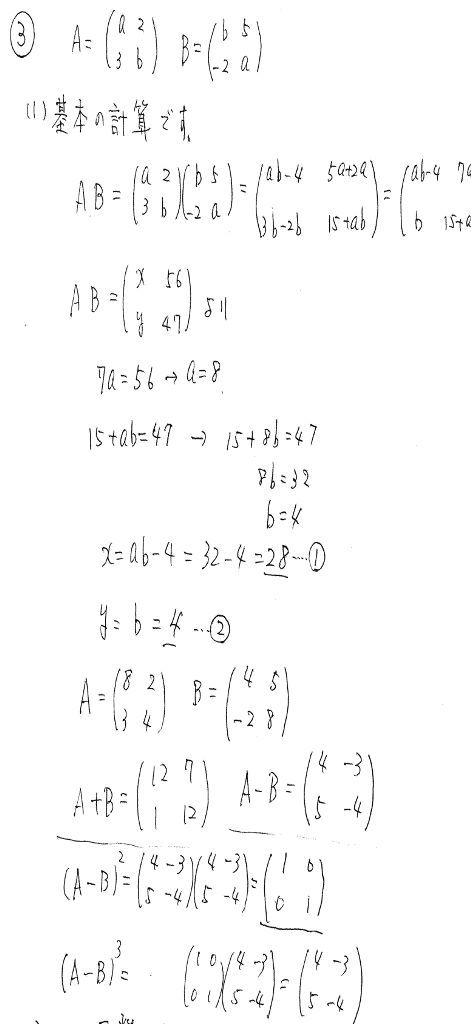 ③ A=(a 2 3 b) B=(b 5 -2 a)
(1) 基本の計算です。
AB=(a 2 3 b)(b 5 -2 a)=(ab-4 5a+2a 3b-2b 15+ab)=(ab-4 7a b 15+a
AB=(x 56 y 47) より
7a=56→a=8
15+ab=47 → 15+8b=47
8b=32
b=4
x=ab-4=32-4=28…①
y=b=4…②
A=(8 2 3 4) B=(4 5 -2 8)
A+B=(12 7 1 12) A-B=(4 -3 5 -4)
(A-B)²=(4 -3 5 -4)(4 -3 5 -4)=(1 0 0 1)
(A-B)³= (1 0 0 1)(4 -3 5 -4)=(4 -3 5 -4)